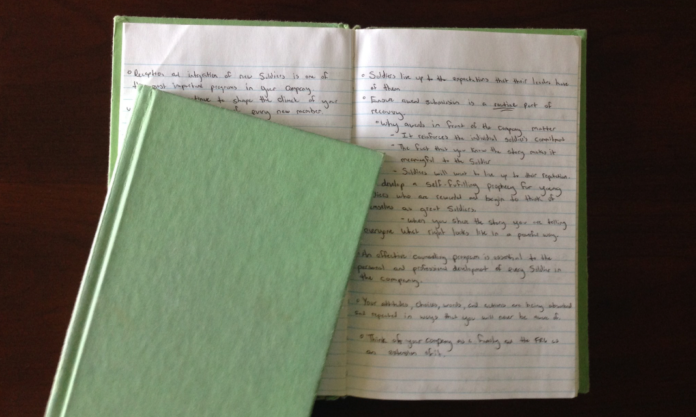 o Reception and integration of new Soldiers is one of
most important programs in your company
time to shape the climate of your
every new member
o Soldiers live up to the expectations that their leaders have
of them
o Frequent award submission is a routine part of
recovery.
- Why awards in front of the company matter
- It reinforces the individual Soldier's commitment
- The fact that you know the story makes it
meaningful to the Soldier
- Soldiers will want to live up to their reputation
develop a self-fulfilling prophecy for young
who are rewarded and begin to think of
as great Soldiers.
- When you share the story you are telling
everyone what right looks like in a powerful way.
- An effective counseling program is essential to the
personal and professional development of every Soldier in
the company.
o Your attitudes, choices, words, and actions are being
and repeated in ways that you will never be aware of
o Think of your company as a family and the FRG as
an extension of it.